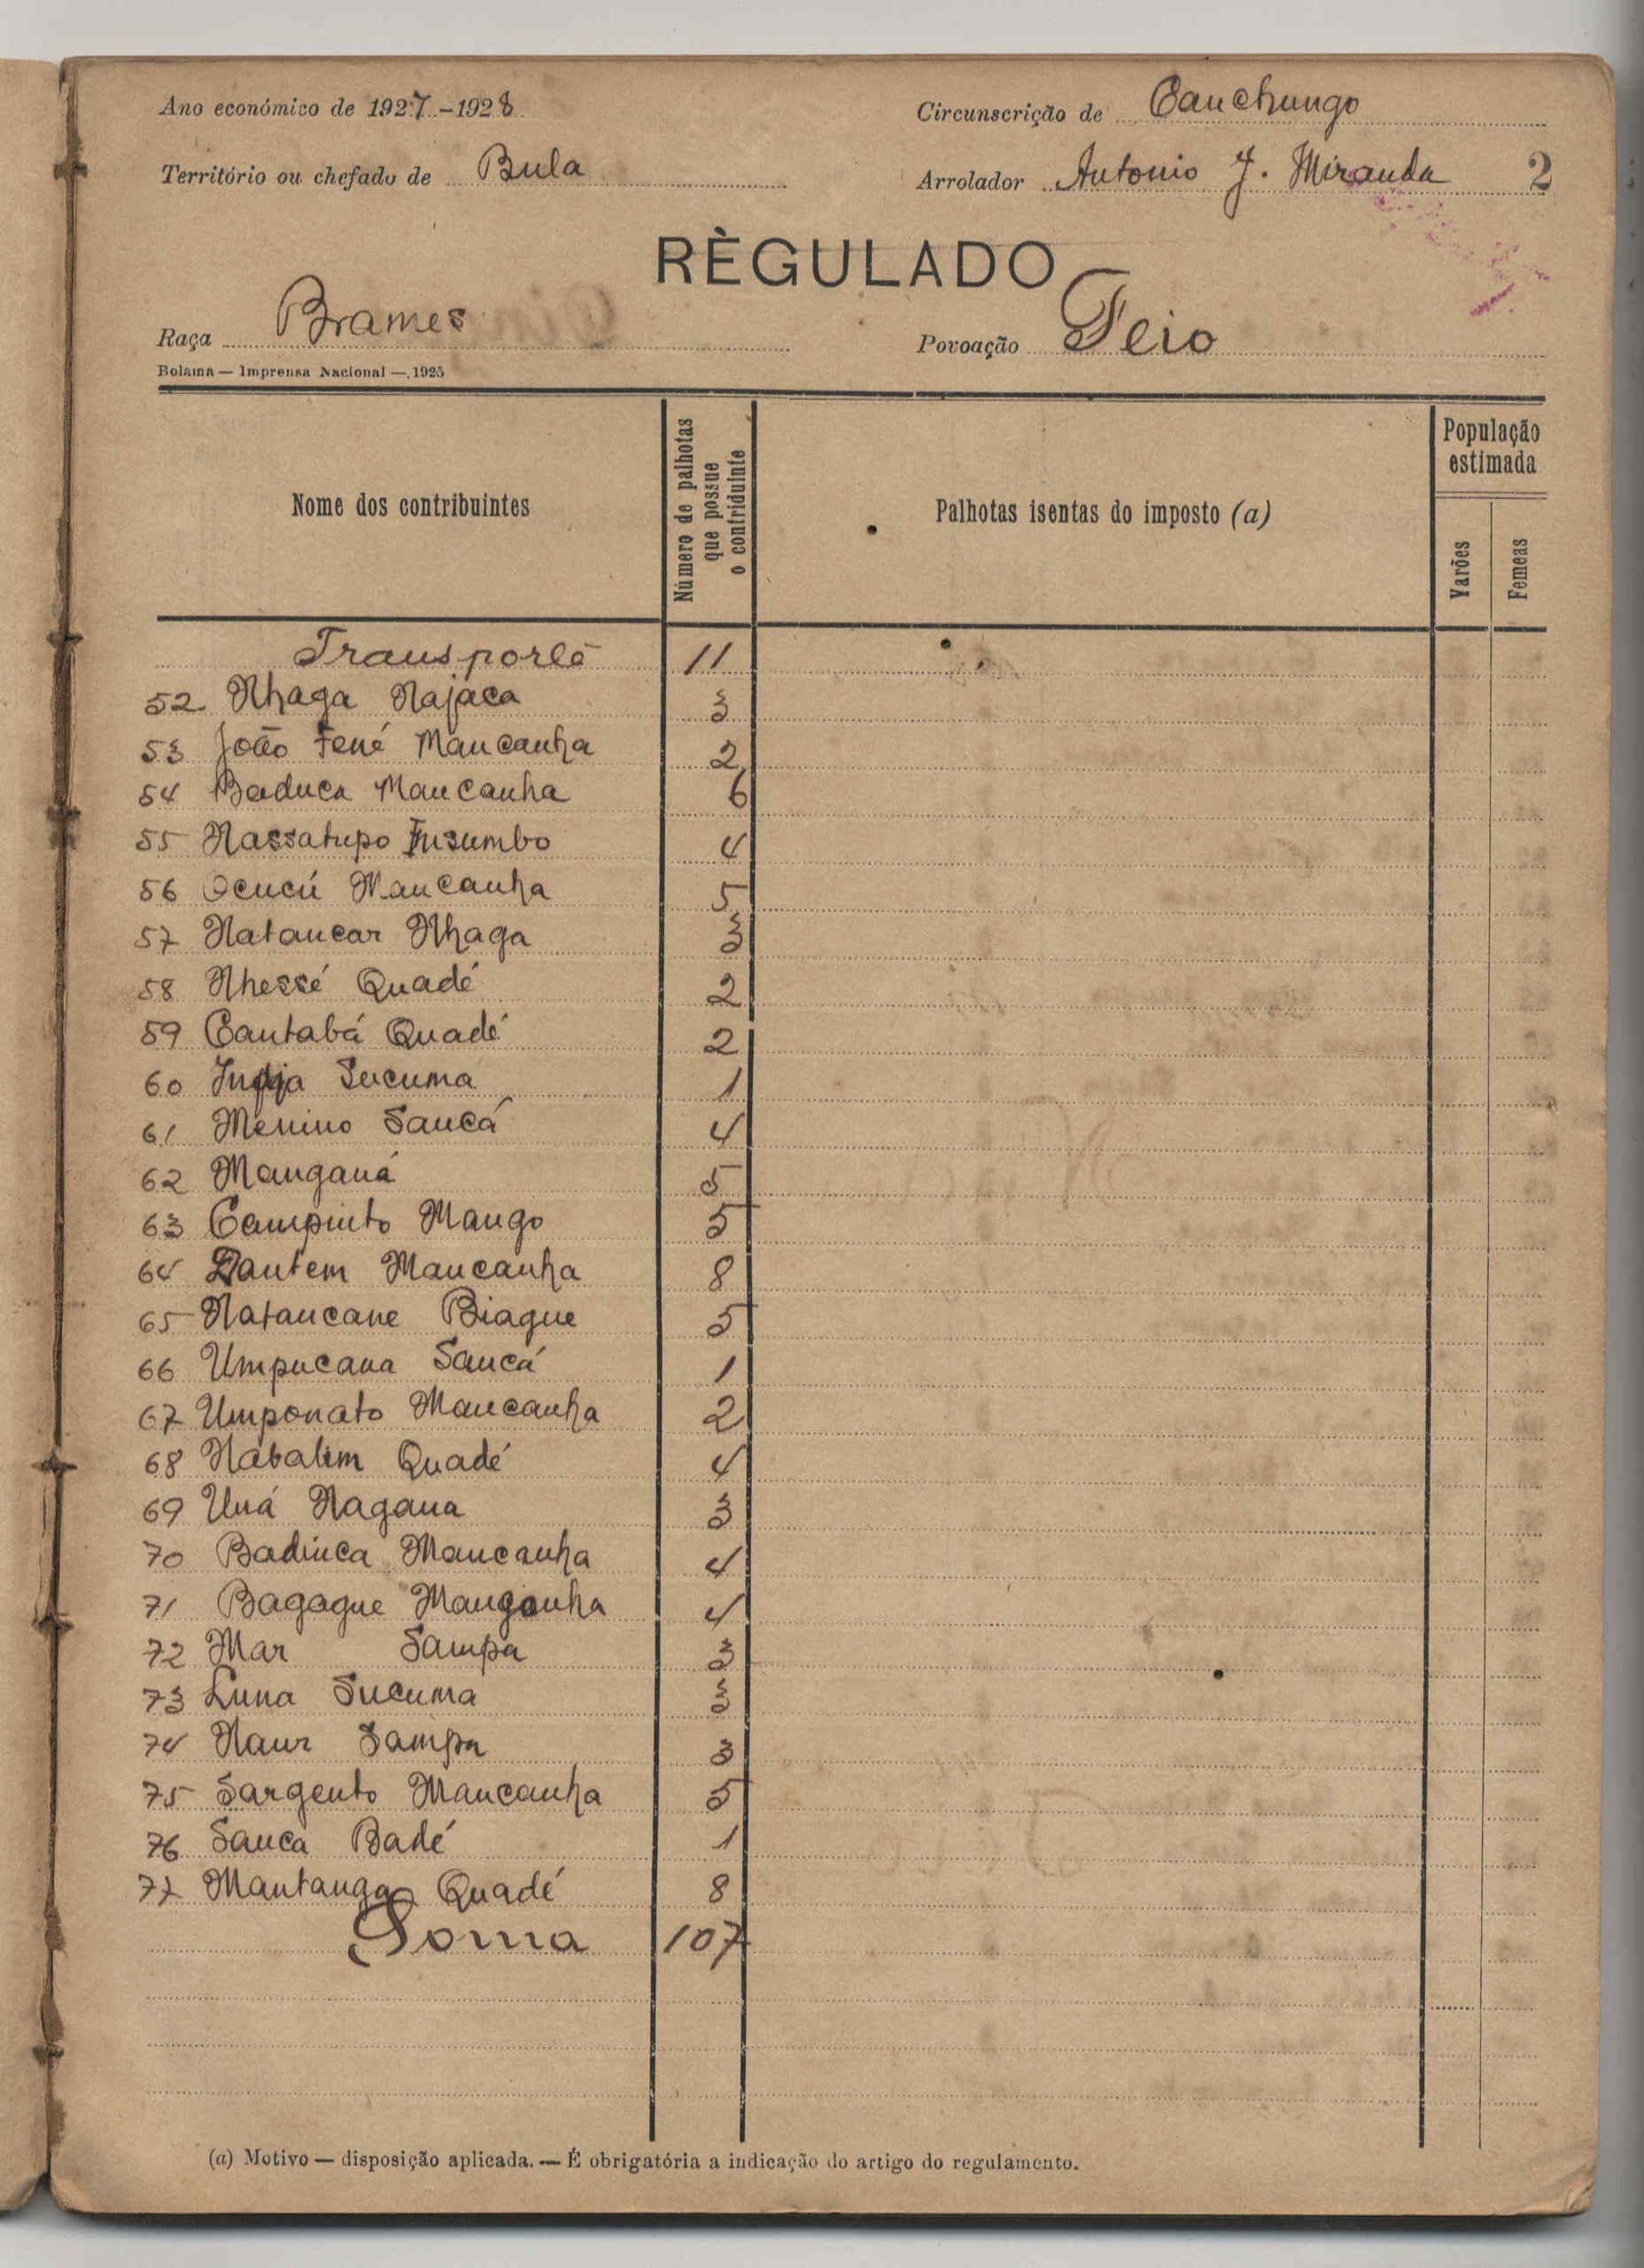 Ano económico de 1927-1928
Circunscrição de Canchungo
Território ou chefado de Bula
Arrolador Antonio J. Miranda 2
RÈGULADO
Raça Brames
Povoação Teio
Bolama — Imprensa Nacional — 1925
Nome dos contribuintes
Número de palhotas que possue o contriduinte
Palhotas isentas do imposto (a)
População estimada
Varões
Femeas
Transporte 11
52 Nhaga Najaca 3
53 João Fené Mancanha 2
54 Baduca Mancanha 6
55 Nassatupo Insumbo 4
56 Ocucú Mancanha 5
57 Natancar Nhaga 3
58 Nhessé Quadé 2
59 Cantabá Quadé 2
60 Sucuma 1
61 Menino Sancá 4
62 Manganá 5
63 Campinto Mango 5
64 Dantem Mancanha 8
65 Natancane Biague 5
66 Umpucana Sancá 1
67 Umponato Mancanha 2
68 Nabalim Quadé 4
69 Uná Nagana 3
70 Badinca Mancanha 4
71 Bagague Manganha 4
72 Mar Sampa 3
73 Luna Sucuma 3
74 Naur Sampa 3
75 Sargento Mancanha 5
76 Sanca Badé 1
77 Mantanga Quadé 8
Soma 107
(a) Motivo — disposição aplicada. — É obrigatória a indicação do artigo do regulamento.